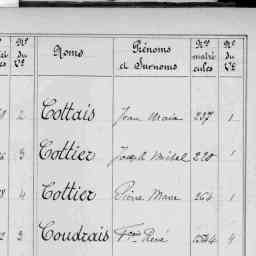 Nº du Vº Noms Prénoms et Surnoms Nºs matricules Nº du Vº
2 Cottais Jean Marie 237 1
3 Cottier Joseph Michel 220 1
4 Cottier Pierre Marie 254 1
3 Coudrais Fçois René 1544 4